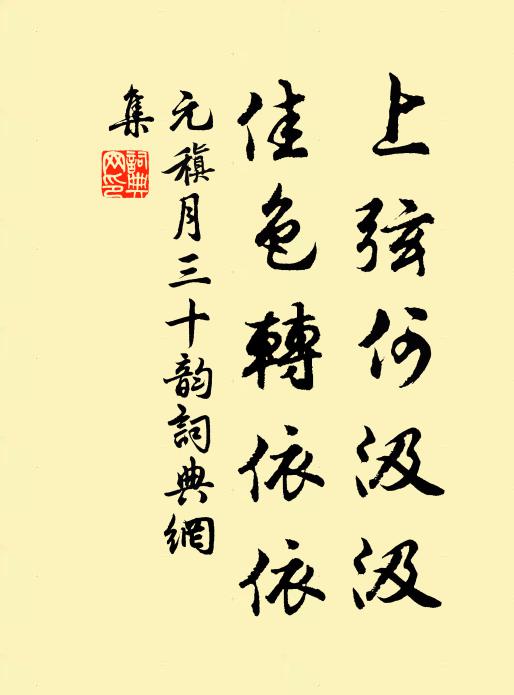 上弦何汲汲
佳色轉依依
元稹月三十韵詞典網
集
詞典網印